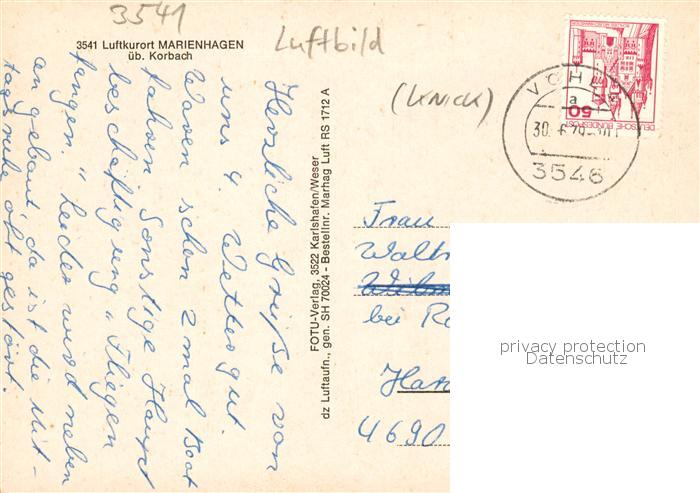 3541
3541 Luftkurort MARIENHAGEN
üb. Korbach
Luftbild
(KNICK)
Herzliche Grüße von
uns 4. Wetter gut.
Waren schon 2 mal Boot
fahren. Sonstige Haupt
beschäftigung "Fliegen
fangen." Leider wird neben
an gebaut, da ist die Mit-
tagsruhe oft gestört.
FOTU-Verlag, 3522 Karlshafen/Weser
dz Luftaufn., gen. SH 70024 - Bestellnr. Marhag Luft RS 1712 A
50
DEUTSCHE BUNDESPOST
VÖHL
a
30.-6.79
3546
Frau
Walt
bei Re
Han
4690
privacy protection
Datenschutz